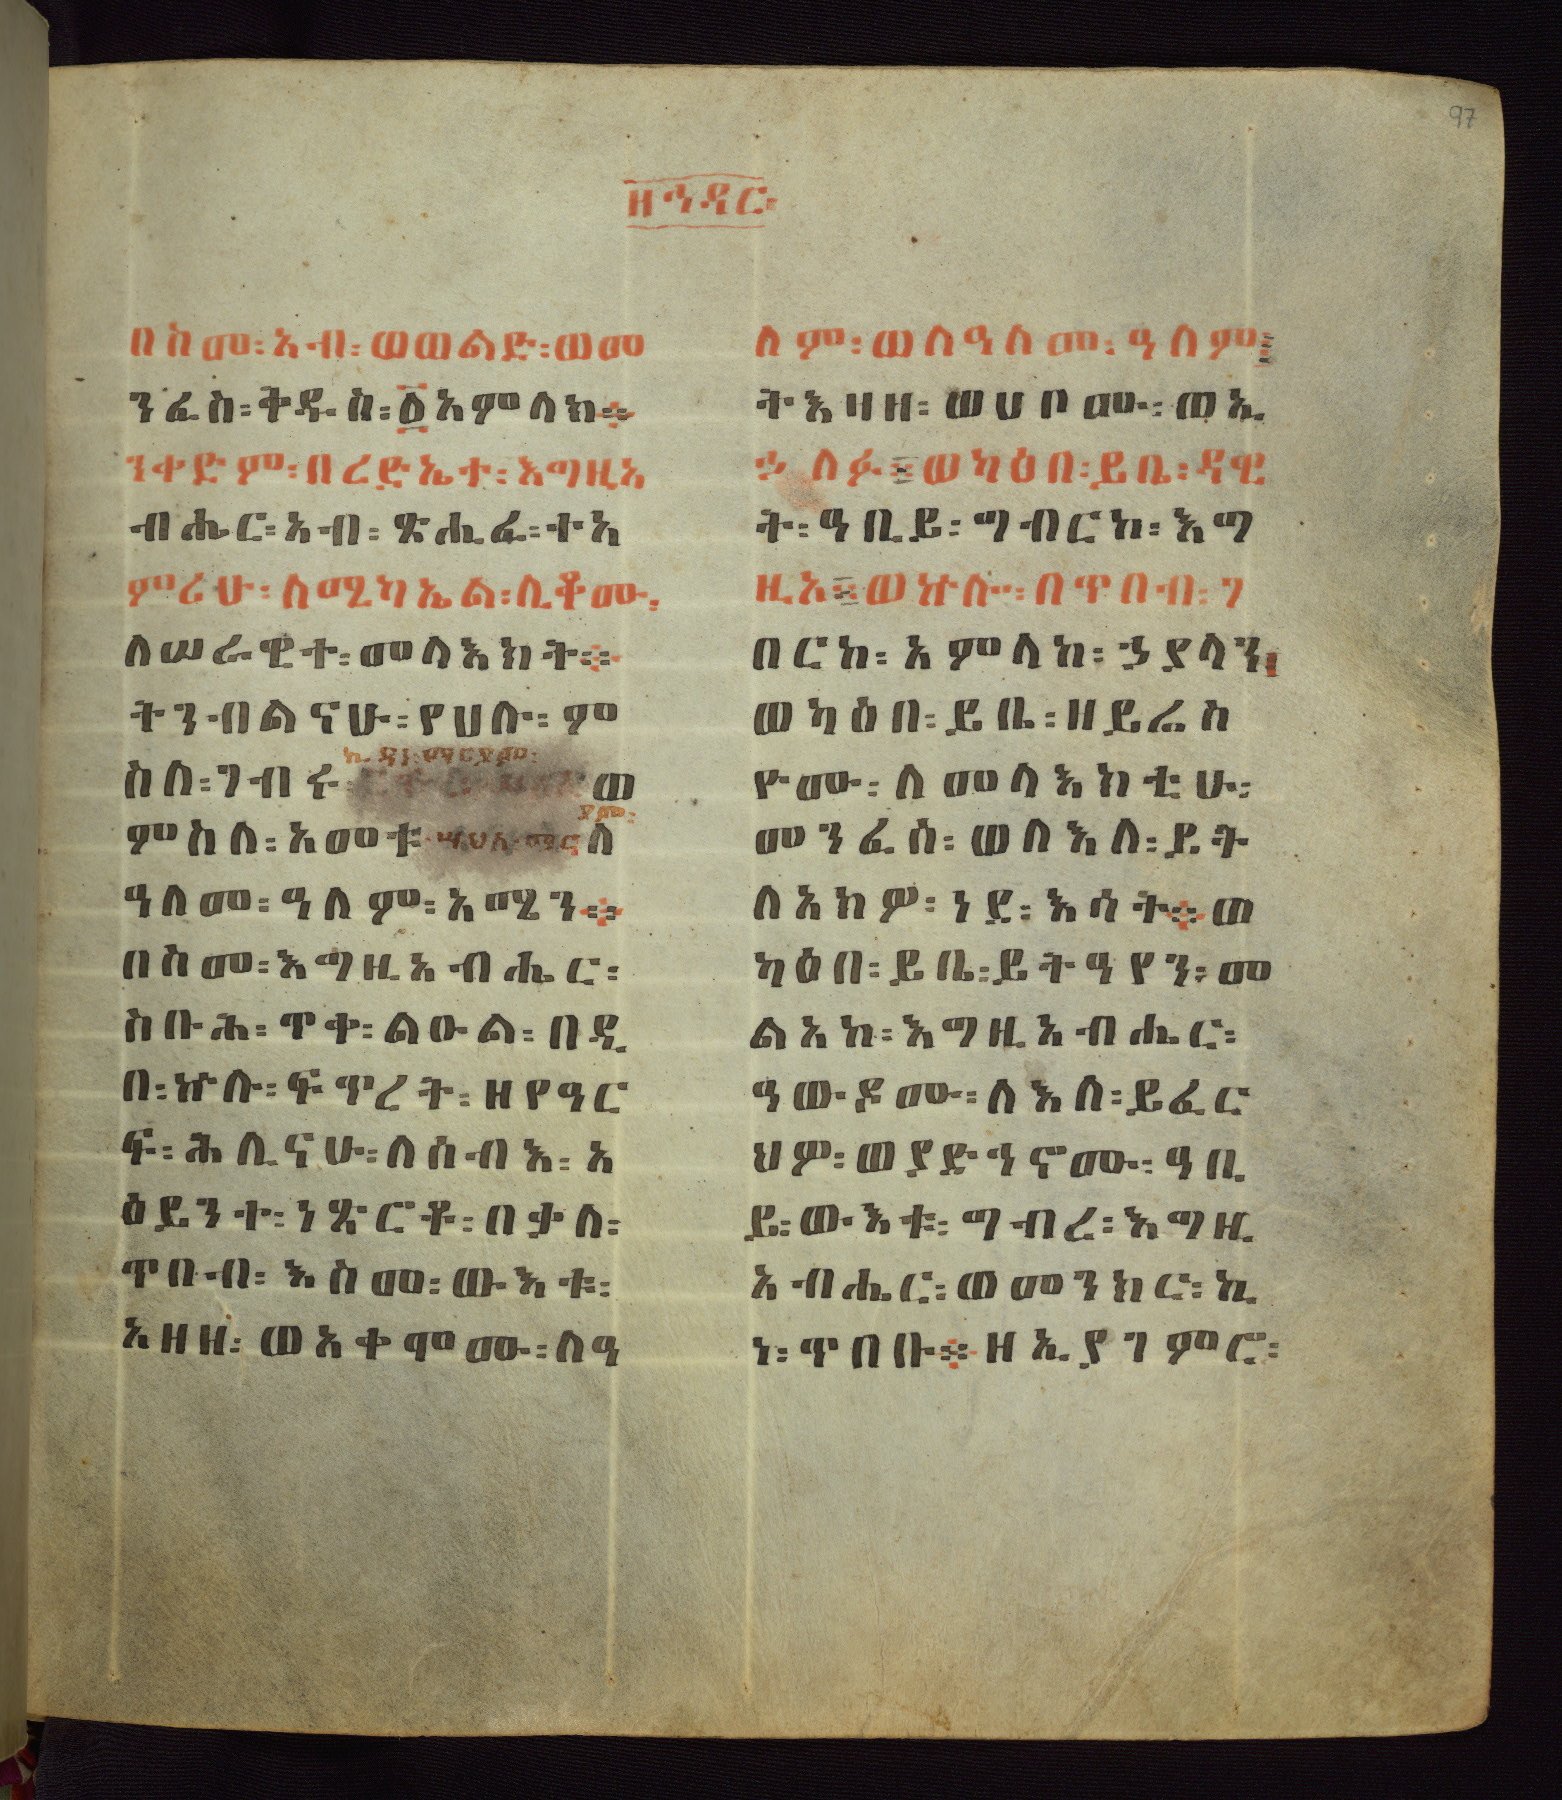 ዘኅዳር፡
በስመ፡ አብ፡ ወወልድ፡ ወመ
ንፈስ፡ ቅዱስ፡ ፩አምላክ።
ንቀድም፡ በረድኤተ፡ እግዚአ
ብሔር፡ አብ፡ ጽሒፈ፡ ተአ
ምሪሁ፡ ለሚካኤል፡ ሊቆሙ፡
ለሠራዊተ፡ መላእክት።
ትንብልናሁ፡ የሀሉ፡ ምስ
ኪዳነ፡ ማርያም፡
ስለ፡ ገብሩ፡ ወ
ያም፡
ምስለ፡ አመቱ፡ ሣህለ፡ ማር ለ
ዓለመ፡ ዓለም፡ አሜን።
በስመ፡ እግዚአብሔር፡
ስቡሕ፡ ጥቀ፡ ልዑል፡ በዲ
በ፡ ኵሉ፡ ፍጥረት፡ ዘየዓር
ፍ፡ ሕሊናሁ፡ ለሰብእ፡ አ
ዕይንተ፡ ነጺርቶ፡ በቃለ፡
ጥበብ፡ እስመ፡ ውእቱ፡
አዘዘ፡ ወአቀሞሙ፡ ለዓ
ለም፡ ወለዓለመ፡ ዓለም።
ትእዛዘ፡ ወሀቦሙ፡ ወኢ
ኃለፉ። ወካዕበ፡ ይቤ፡ ዳዊ
ት፡ ዓቢይ፡ ግብርከ፡ እግ
ዚኦ። ወኵሎ፡ በጥበብ፡ ገ
በርከ፡ አምላከ፡ ኃያላን፡
ወካዕበ፡ ይቤ፡ ዘይሬስ
ዮሙ፡ ለመላእክቲሁ፡
መንፈሰ፡ ወለእለ፡ ይት
ለአክዎ፡ ነደ፡ እሳት። ወ
ካዕበ፡ ይቤ፡ ይትዓየን፡ መ
ልአከ፡ እግዚአብሔር፡
ዓውዶሙ፡ ለእለ፡ ይፈር
ህዎ፡ ወያድኅኖሙ፡ ዓቢ
ይ፡ ውእቱ፡ ግብረ፡ እግዚ
አብሔር፡ ወመንክር፡ ኪ
ነ፡ ጥበቡ። ዘኢያገምሮ፡